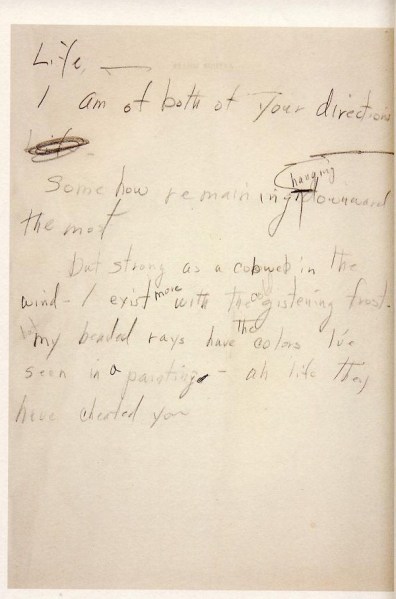 Life —
I am of both of your directions
Life
Somehow remaining hanging downward
the most
but strong as a cobweb in the
wind – I exist more with the cold glistening frost.
but my beaded rays have the colors I've
seen in a painting – ah life they
have cheated you